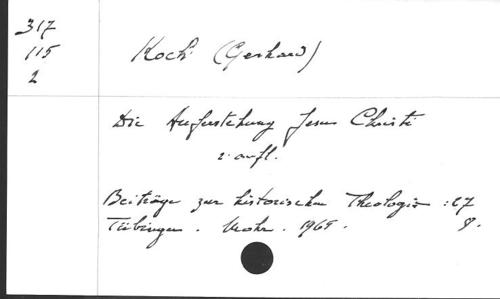 317
115
2
Koch (Gerhard)
Die Auferstehung Jesus Christi
2. aufl.
Beiträge zur historischen Theologie : 27
Tübingen. Mohr. 1965. 8.